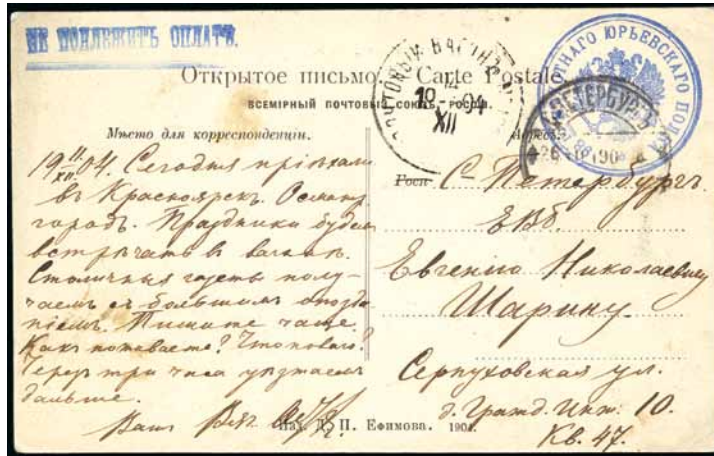 НЕ ПОДЛЕЖИТЪ ОПЛАТѢ.
Открытое письмо. Carte Postale
ВСЕМІРНЫЙ ПОЧТОВЫЙ СОЮЗЪ. РОССІЯ.
ПОЧТОВЫЙ ВАГОНЪ
10 04
XII
ЮРЬЕВСКАГО ПОЛКА
ПЕТЕРБУРГ
Мѣсто для корреспонденціи.
Адресъ
19 11/XII 04. Сегодня пріѣхали
въ Красноярскъ. Осматр.
городъ. Праздники будем
встрѣчать въ вагонѣ.
Столичныя газеты полу-
чаемъ съ большимъ опозда-
ніемъ. Пишите чаще.
Какъ поживаете? Что новаго?
Черезъ три часа уѣзжаемъ
дальше.
Вашъ
Госп
С-Петербургъ
ЕВБ.
Евгенію Николаевичу
Шарину.
Серпуховская ул.
д. Гражд. Инж. 10.
Кв. 47.
Изд. Д. П. Ефимова. 1904